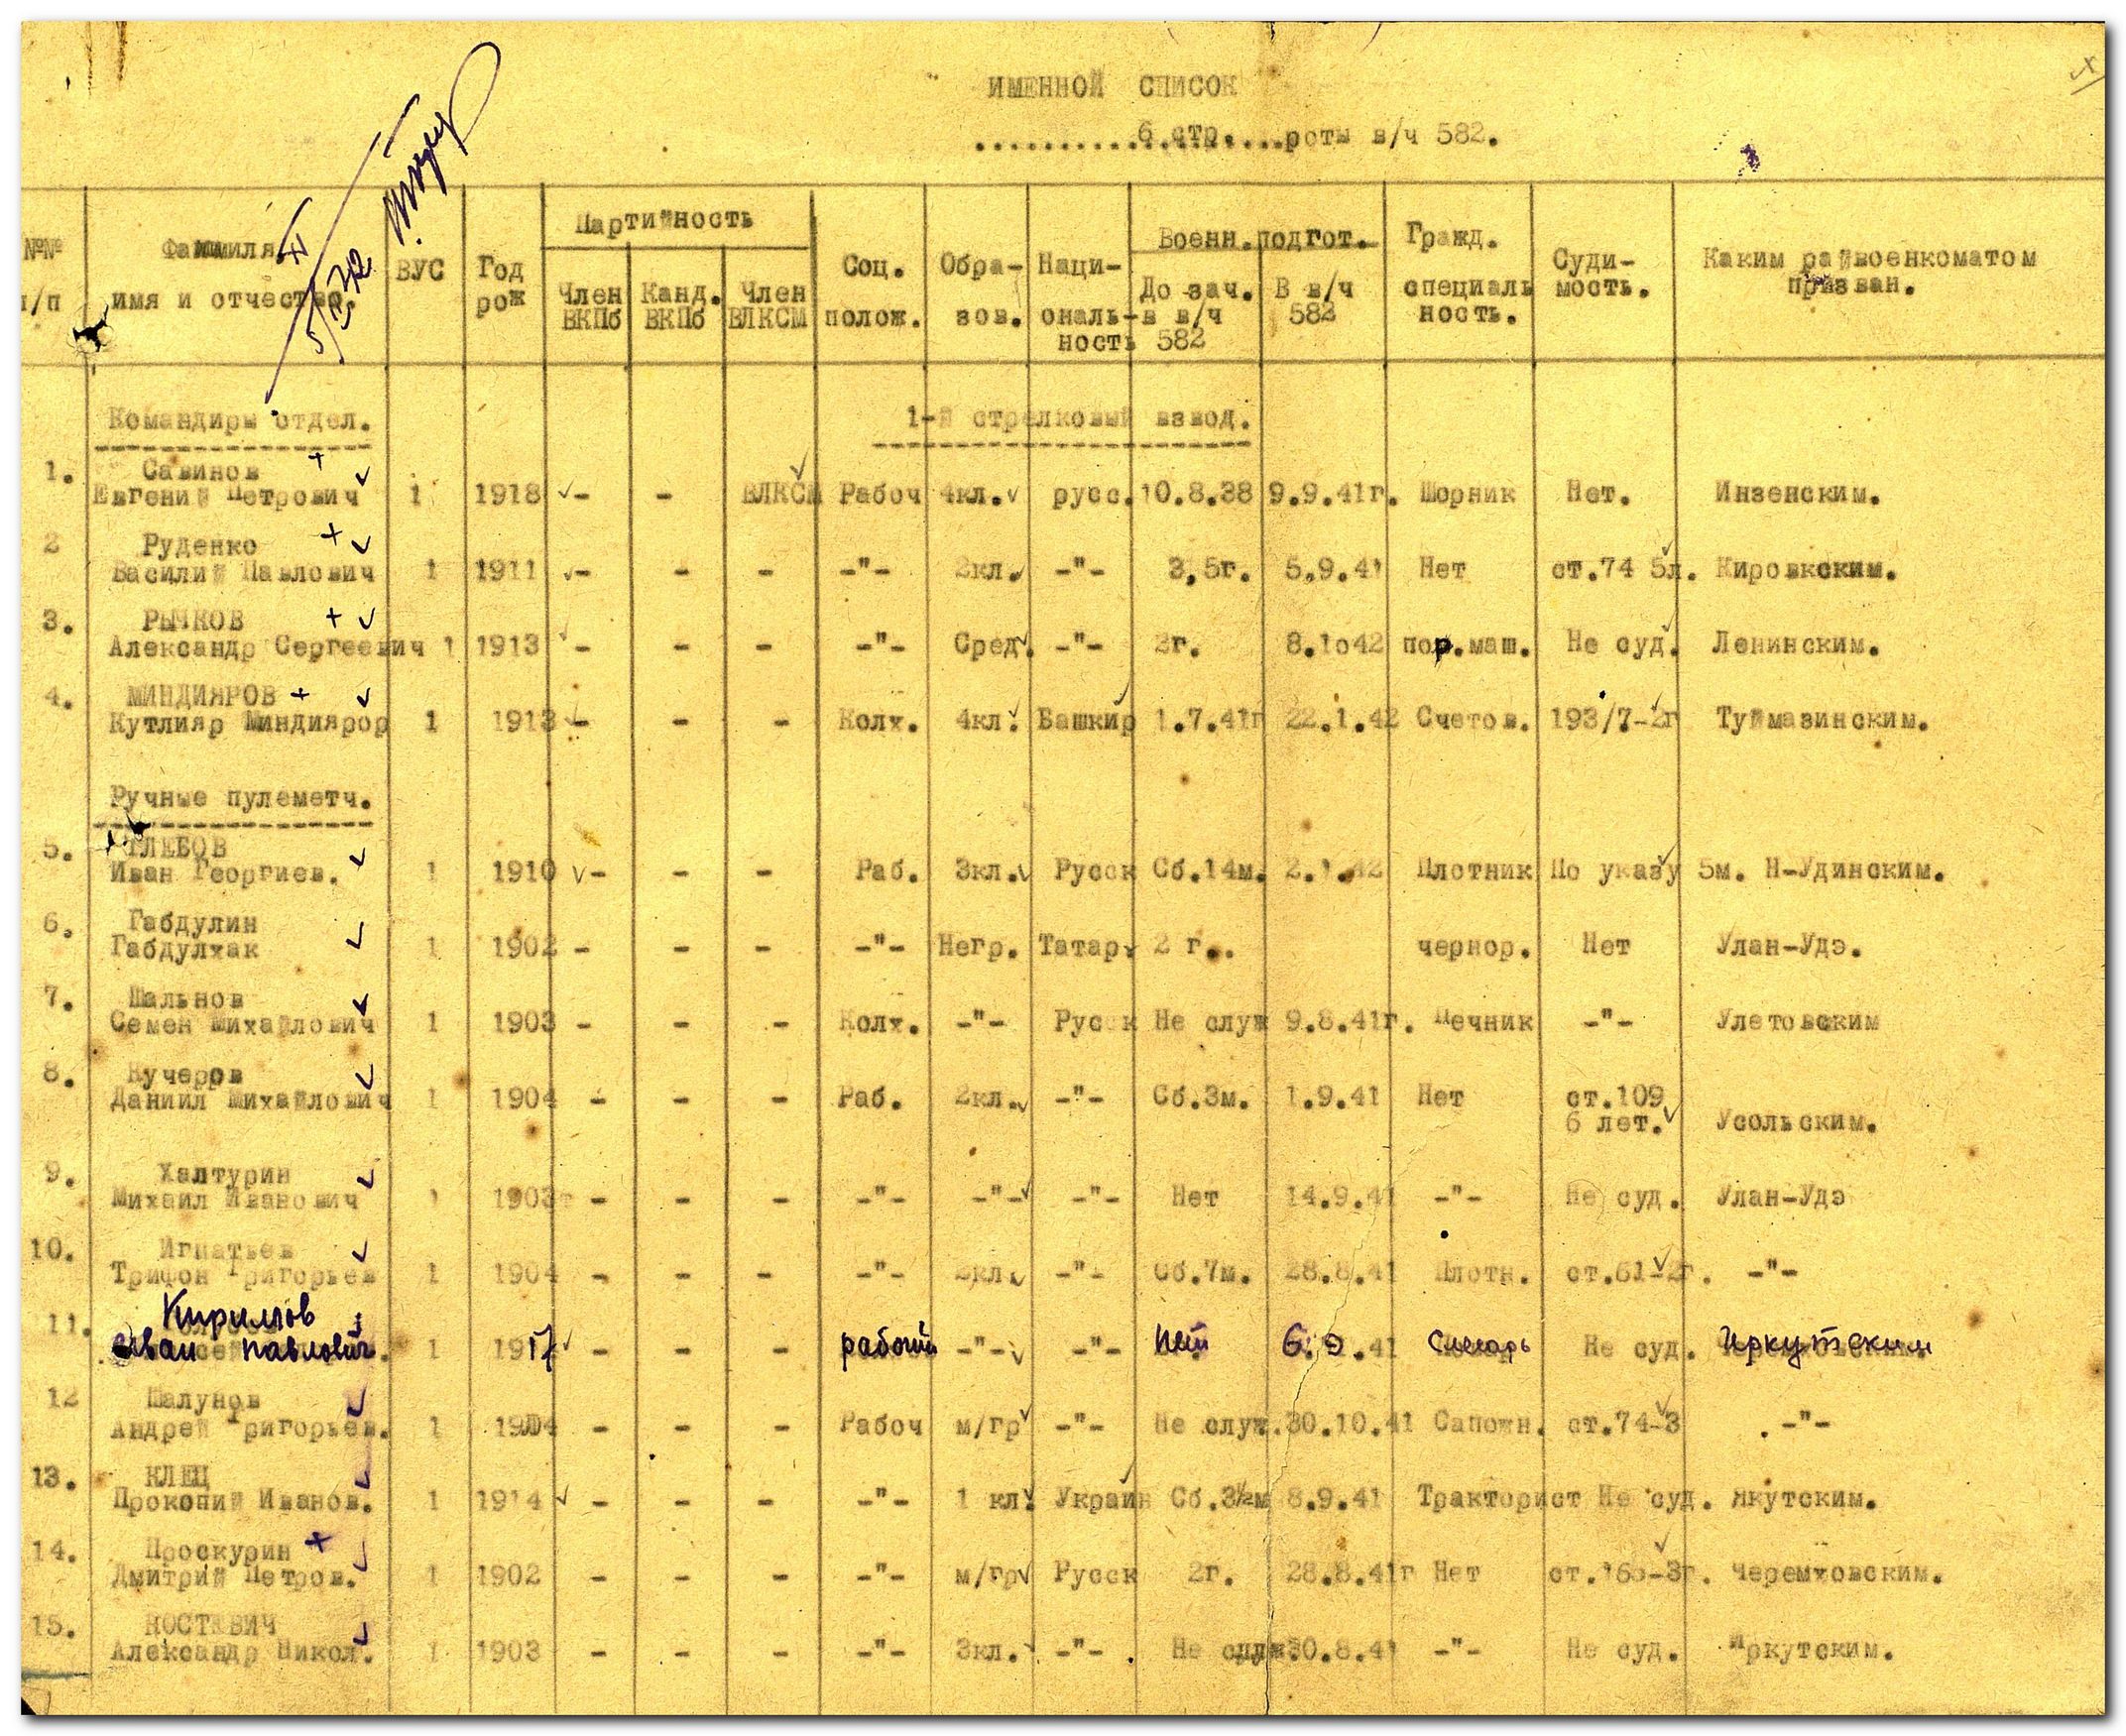 ИМЕННОЙ СПИСОК
...........6 стр....роты в/ч 582.
№№ п/п
Фамилия имя и отчество
ВУС
Год рож
Партийность
Член ВКПб
Канд. ВКПб
Член ВЛКСМ
Соц. полож.
Обра-зов.
Наци-ональ-ность
Военн.подгот.
До зач. в в/ч 582
В в/ч 582
Гражд. специаль ность.
Суди-мость.
Каким райвоенкоматом призван.
Командиры отдел.
1-й стрелковый взвод.
1. Савинов
Евгений Петрович 1 1918 - - ВЛКСМ Рабоч 4кл. русс. 10.8.38 9.9.41г. Шорник Нет. Инзенским.
2 Руденко
Василий Павлович 1 1911 - - - -"- 2кл. -"- 3,5г. 5.9.41 Нет ст.74 5л. Кировкским.
3. РЫЧКОВ
Александр Сергеевич 1 1913 - - - -"- Сред. -"- 2г. 8.1о42 пор.маш. Не суд. Ленинским.
4. МИНДИЯРОВ
Кутлияр Миндиярор 1 1913 - - - Колх. 4кл. Башкир 1.7.41г 22.1.42 Счетов. 193/7-2г Туймазинским.
Ручные пулеметч.
5. ГЛЕБОВ
Иван Георгиев. 1 1910 - - - Раб. 3кл. Русск Сб.14м. 2.1.42 Плотник По указу 5м. Н-Удинским.
6. Габдулин
Габдулхак 1 1902 - - - -"- Негр. Татар. 2 г.. чернор. Нет Улан-Удэ.
7. Шальнов
Семен Михайлович 1 1903 - - - Колх. -"- Русск Не служ 9.8.41г. Печник -"- Улетовским
8. Кучеров
Даниил Михайлович 1 1904 - - - Раб. 2кл. -"- Сб.3м. 1.9.41 Нет ст.109
6 лет. Усольским.
9. Халтурин
Михаил Иванович 1 1903 - - - -"- -"- -"- Нет 14.9.41 -"- Не суд. Улан-Удэ
10. Игнатьев
Трифон Григорьев 1 1904 - - - -"- 2кл. -"- Сб.7м. 28.8.41 Плотн. ст.61-2г. -"-
11. Кириллов
Иван Павлович. 1 1917 - - - рабочий -"- -"- Нет 6.9.41 Слесарь Не суд. Иркутским
12 Шалунов
Андрей Григорьев. 1 1904 - - - Рабоч м/гр -"- Не служ. 30.10.41 Сапожн. ст.74-3 -"-
13. КЛЕЦ
Прокопий Иванов. 1 1914 - - - -"- 1 кл. Украин Сб.3½м 8.9.41 Тракторист Не суд. Якутским.
14. Проскурин
Дмитрий Петров. 1 1902 - - - -"- м/гр Русск 2г. 28.8.41г Нет Черемховским.
15. КОСТЕВИЧ
Александр Никол. 1 1903 - - - -"- 3кл. -"- Не служ. 30.8.41 -"- Не суд. Иркутским.